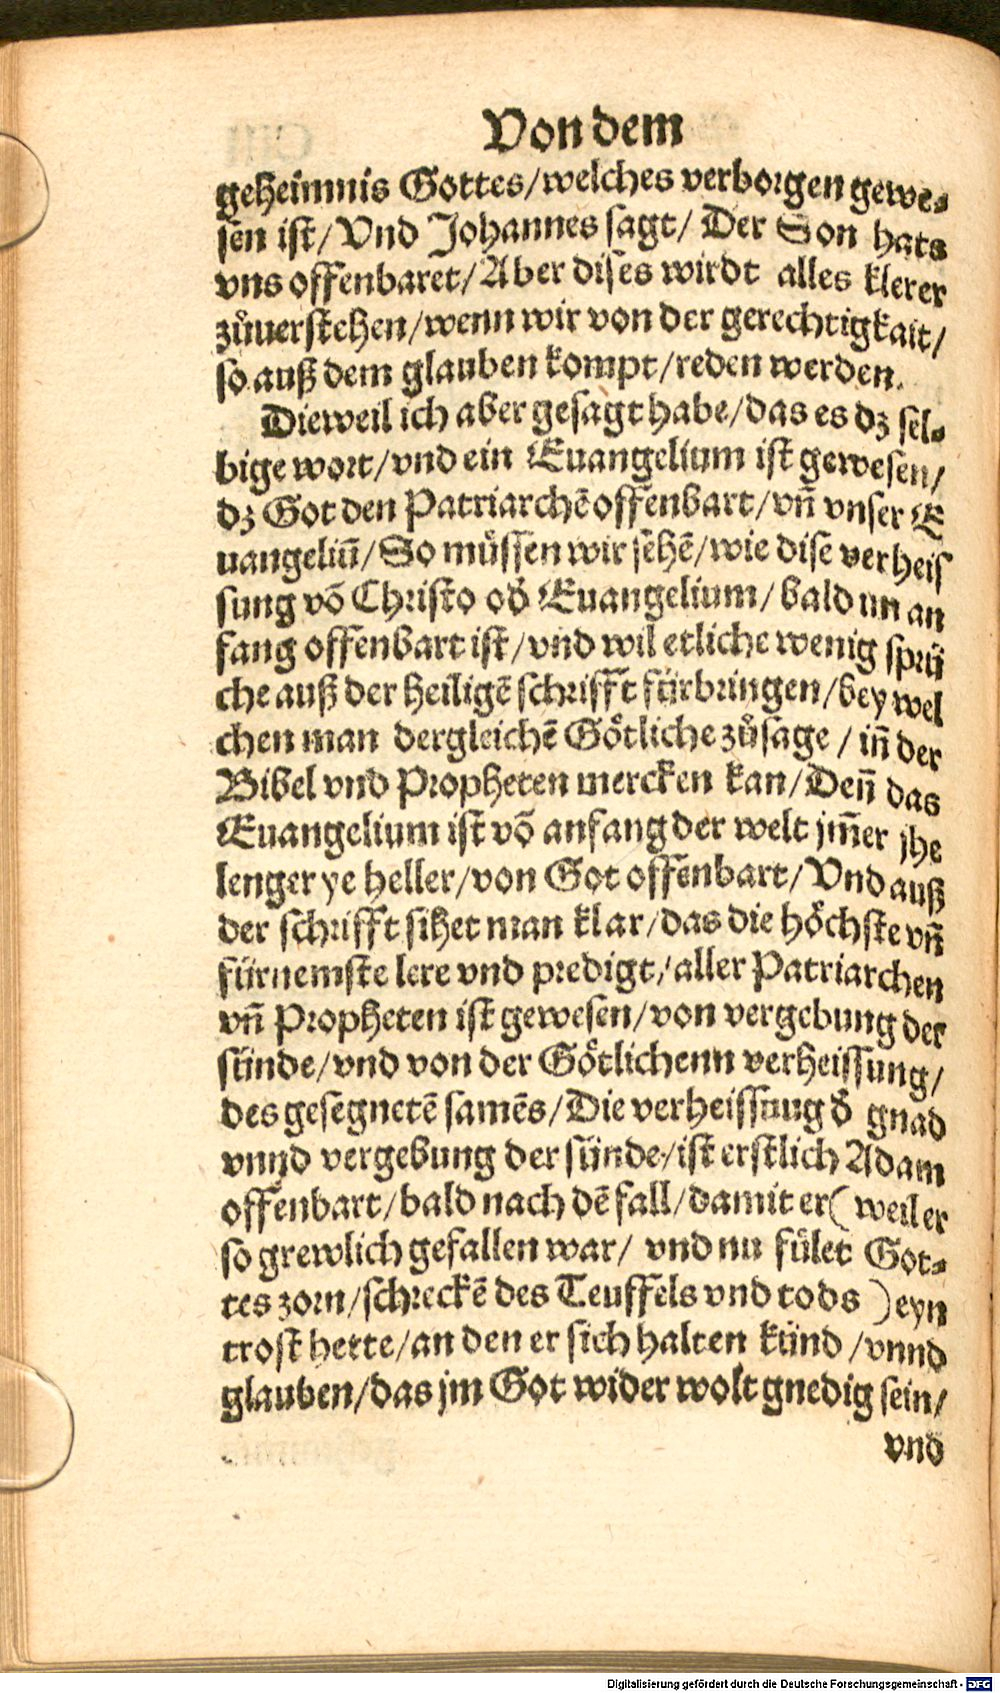 Von dem
geheimnis Gottes/welches verborgen gewe⸗
sen ist/Vnd Johannes sagt/ Der Son hats
vns offenbaret/Aber dises wirdt alles klerer
zůuerstehen/wenn wir von der gerechtigkait/
so auß dem glauben kompt/reden werden.
Dieweil ich aber gesagt habe/das es dz sel⸗
bige wort/vnd ein Euangelium ist gewesen/
dz Got den Patriarchē offenbart/vn̄ vnser E
uangeliū/So müssen wir sehē/wie dise verheis
sung vō Christo od̓ Euangelium/bald im an
fang offenbart ist/vnd wil etliche wenig sprü
che auß der heiligē schrifft fürbringen/bey wel
chen man dergleichē Götliche zůsage/in̄ der
Bibel vnd Propheten mercken kan/Den̄ das
Euangelium ist vō anfang der welt jm̄er jhe
lenger ye heller/von Got offenbart/Vnd auß
der schrifft sihet man klar/das die höchste vn̄
fürnemste lere vnd predigt/aller Patriarchen
vn̄ Propheten ist gewesen/von vergebung der
sünde/vnd von der Götlichenn verheissung/
des gesegnetē samēs/Die verheissung d̓ gnad
vnnd vergebung der sünde/ist erstlich Adam
offenbart/bald nach dē fall/damit er(weil er
so grewlich gefallen war/ vnd nu fület Got⸗
tes zorn/schreckē des Teuffels vnd tods )eyn
trost hette/an den er sich halten künd/vnnd
glauben/das jm Got wider wolt gnedig sein/
vnd
Digitalisierung gefördert durch die Deutsche Forschungsgemeinschaft - DFG